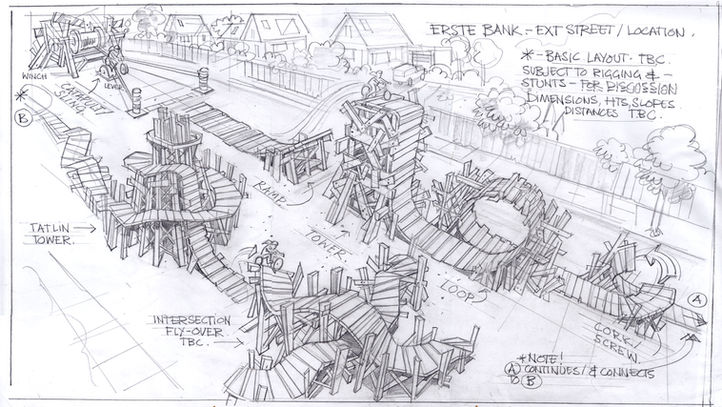 ERSTE BANK - EXT STREET / LOCATION.
* - BASIC LAYOUT - TBC.
SUBJECT TO RIGGING & -
STUNTS - FOR DISCUSSION
DIMENSIONS, HTS, SLOPES
DISTANCES T.B.C.
WINCH
CATAPULT/
SLING
LEVER
*
B
RAMP.
TATLIN
TOWER.
TOWER
LOOP
INTERSECTION
FLY-OVER
TBC.
A
CORK/
SCREW.
* NOTE!
A CONTINUES/ & CONNECTS
TO B